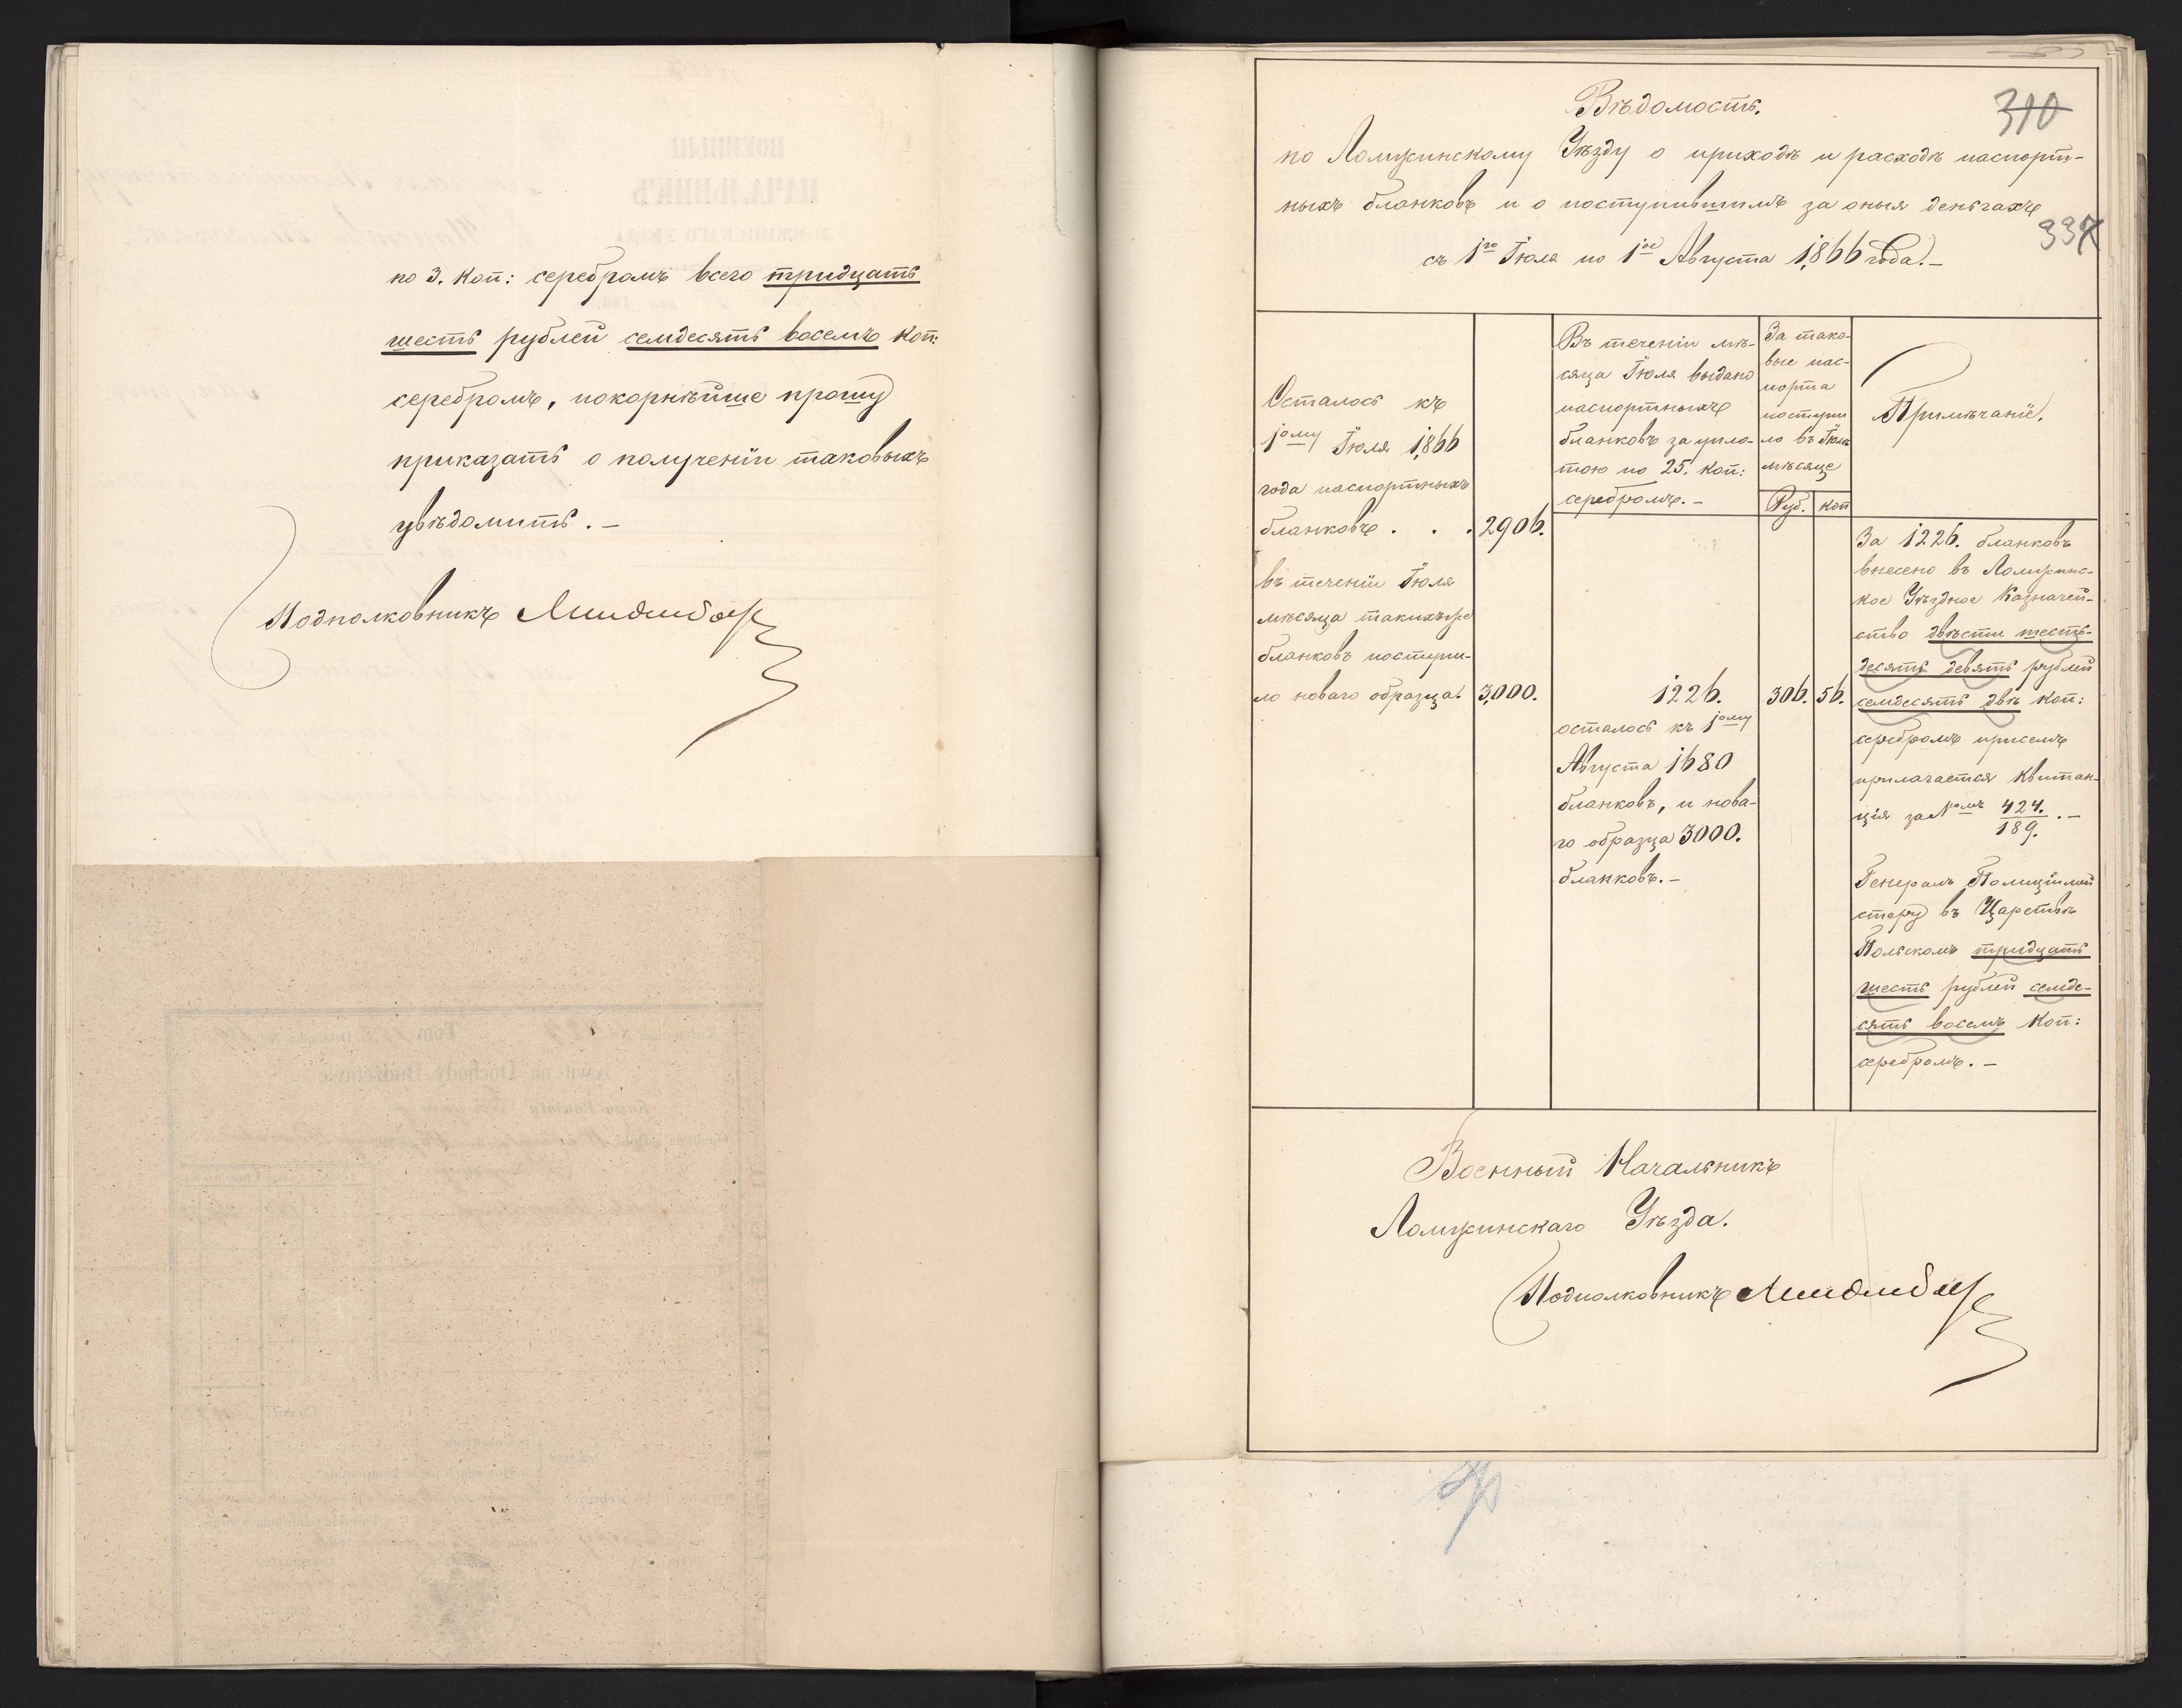 по 3. коп: серебромъ всего тридцать
шесть рублей семдесятъ восемъ коп:
серебромъ, покорнѣйше прошу
приказать о полученіи таковыхъ
увѣдомить. —
Подполковникъ
310
337
Вѣдомость.
по Ломжинскому Уѣзду о приходѣ и расходѣ паспорт-
ныхъ бланковъ и о поступившимъ за оныя деньгахъ
съ 1го Іюля по 1ое Августа 1866 года. —
Осталось къ
1ому Іюля 1866
года паспортныхъ
бланковъ . . . 2906.
въ теченіи Іюля
мѣсяца такихъже
бланковъ поступи-
ло новаго образца. 3,000.
Въ теченіи мѣ-
сяца Іюля выдано
паспортныхъ
бланковъ за упла-
тою по 25. коп:
серебромъ. —
1226.
осталось къ 1ому
Августа 1680
бланковъ, и нова-
го образца 3000.
бланковъ. —
За тако-
вые пас-
порта
поступи
ло въ Іюлѣ
мѣсяце
Руб. коп
306. 56.
Примѣчаніе.
За 1226. бланковъ
внесено въ Ломжинс-
кое Уѣздное Казначей-
ство двѣсти шесть-
десятъ девять рублей
семдесятъ двѣ коп:
серебромъ присемъ
прилагается квитан-
ція за №омъ 424./189. . —
Генералъ Полиціймей
стеру въ Царствѣ
Польскомъ тридцать
шесть рублей семде-
сятъ восемъ коп:
серебромъ. —
Военный Начальникъ
Ломжинскаго Уѣзда.
Подполковникъ